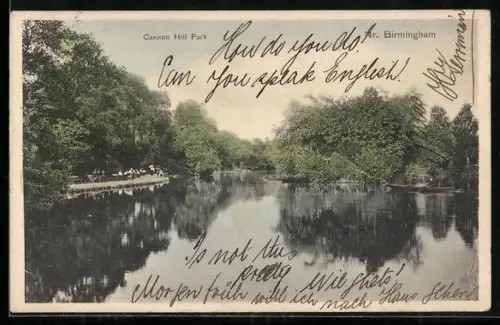 Cannon Hill Park
Nr. Birmingham
How do you do!
Can you speak English!
Is not this
pretty
Wie ghets?
Morgen früh will ich nach Haus gehen